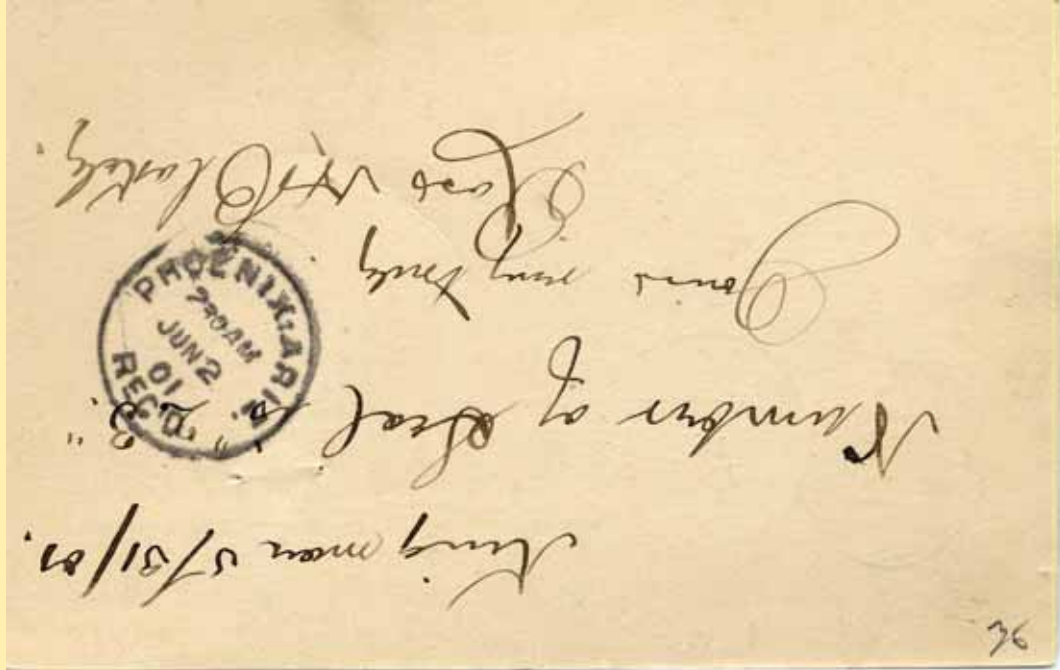 Kingman 5/31/01.
Number of Seal is
Yours very truly
Ross H. Blakely.
PHOENIX, ARIZ.
730 AM
JUN 2
01
REC'D.
36